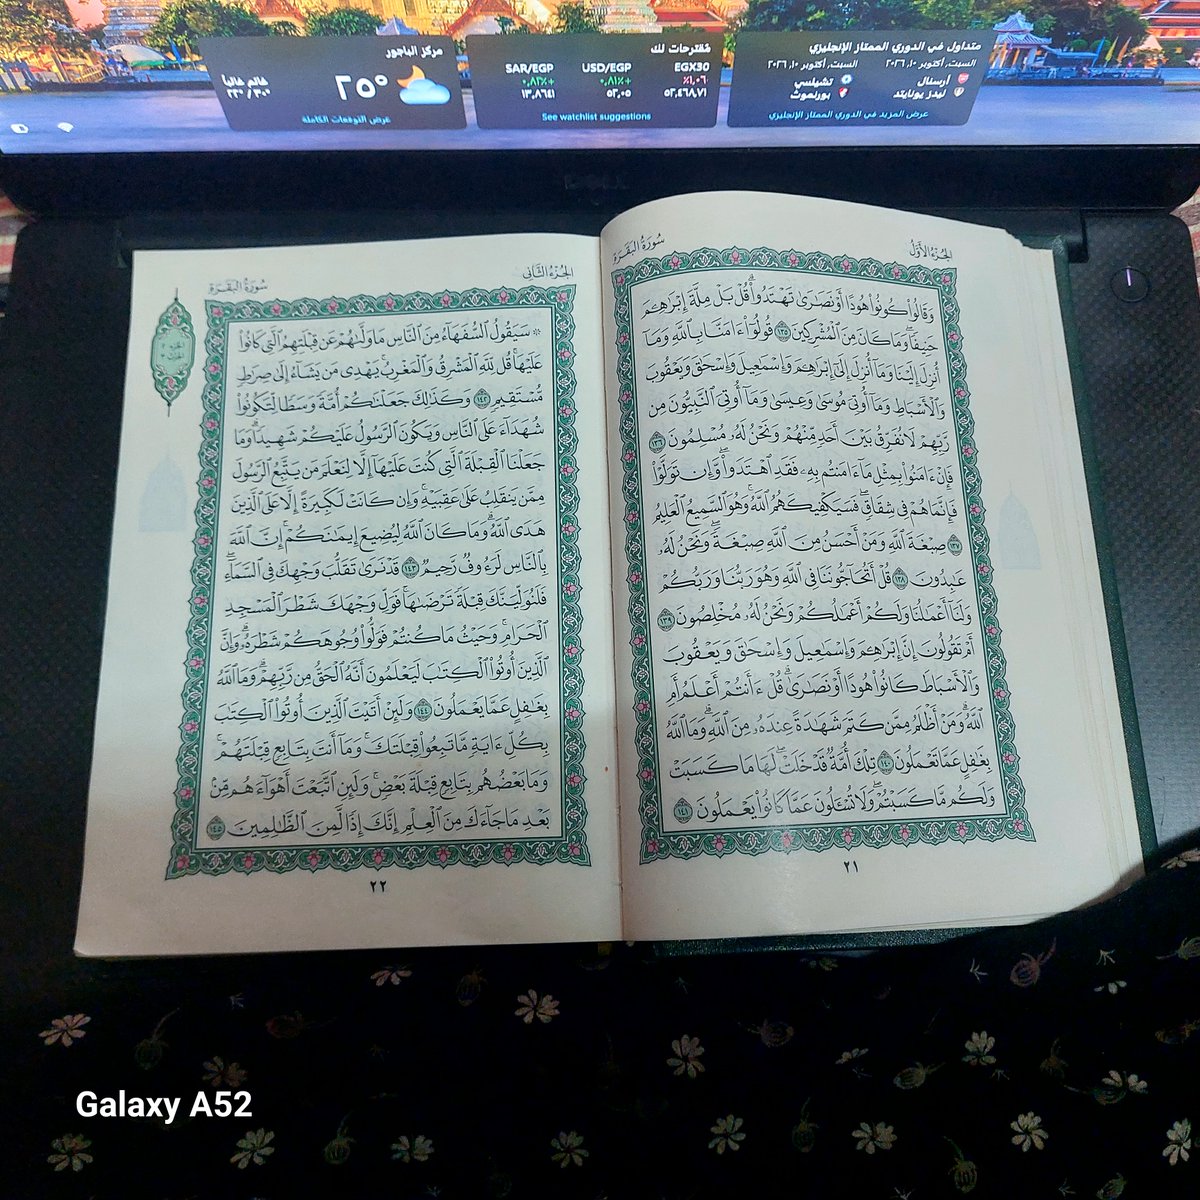 متداول في الدوري الممتاز الإنجليزي
السبت, أكتوبر ١٠, ٢٠٢٦ السبت, أكتوبر ١٠, ٢٠٢٦
أرسنال تشيلسي
ليدز يونايتد بورنموث
عرض المزيد في الدوري الممتاز الإنجليزي
مقترحات لك
EGX30 USD/EGP SAR/EGP
٪١٫٠٦ ٪٠٫٨١+ ٪٠٫٨٢+
٥٢,٤٦٨٫٧١ ٥٢٫٠٥ ١٣٫٨٦٤١
See watchlist suggestions
مركز الباجور
٢٥°
غائم غالباً
٣٠° / ٢٣°
عرض التوقعات الكاملة
الجُزءُ الأَوَّلُ سُورَةُ البَقَرَةِ
وَقَالُواْ كُونُواْ هُودًا أَوۡ نَصَٰرَىٰ تَهۡتَدُواْۗ قُلۡ بَلۡ مِلَّةَ إِبۡرَٰهِـۧمَ
حَنِيفٗاۖ وَمَا كَانَ مِنَ ٱلۡمُشۡرِكِينَ ١٣٥ قُولُوٓاْ ءَامَنَّا بِٱللَّهِ وَمَآ
أُنزِلَ إِلَيۡنَا وَمَآ أُنزِلَ إِلَىٰٓ إِبۡرَٰهِـۧمَ وَإِسۡمَٰعِيلَ وَإِسۡحَٰقَ وَيَعۡقُوبَ
وَٱلۡأَسۡبَاطِ وَمَآ أُوتِيَ مُوسَىٰ وَعِيسَىٰ وَمَآ أُوتِيَ ٱلنَّبِيُّونَ مِن
رَّبِّهِمۡ لَا نُفَرِّقُ بَيۡنَ أَحَدٖ مِّنۡهُمۡ وَنَحۡنُ لَهُۥ مُسۡلِمُونَ ١٣٦
فَإِنۡ ءَامَنُواْ بِمِثۡلِ مَآ ءَامَنتُم بِهِۦ فَقَدِ ٱهۡتَدَواْۖ وَّإِن تَوَلَّوۡاْ
فَإِنَّمَا هُمۡ فِي شِقَاقٖۖ فَسَيَكۡفِيكَهُمُ ٱللَّهُۚ وَهُوَ ٱلسَّمِيعُ ٱلۡعَلِيمُ
١٣٧ صِبۡغَةَ ٱللَّهِ وَمَنۡ أَحۡسَنُ مِنَ ٱللَّهِ صِبۡغَةٗۖ وَنَحۡنُ لَهُۥ
عَٰبِدُونَ ١٣٨ قُلۡ أَتُحَآجُّونَنَا فِي ٱللَّهِ وَهُوَ رَبُّنَا وَرَبُّكُمۡ
وَلَنَآ أَعۡمَٰلُنَا وَلَكُمۡ أَعۡمَٰلُكُمۡ وَنَحۡنُ لَهُۥ مُخۡلِصُونَ ١٣٩
أَمۡ تَقُولُونَ إِنَّ إِبۡرَٰهِـۧمَ وَإِسۡمَٰعِيلَ وَإِسۡحَٰقَ وَيَعۡقُوبَ
وَٱلۡأَسۡبَاطَ كَانُواْ هُودًا أَوۡ نَصَٰرَىٰۗ قُلۡ ءَأَنتُمۡ أَعۡلَمُ أَمِ
ٱللَّهُۗ وَمَنۡ أَظۡلَمُ مِمَّن كَتَمَ شَهَٰدَةً عِندَهُۥ مِنَ ٱللَّهِۗ وَمَا ٱللَّهُ
بِغَٰفِلٍ عَمَّا تَعۡمَلُونَ ١٤٠ تِلۡكَ أُمَّةٞ قَدۡ خَلَتۡۖ لَهَا مَا كَسَبَتۡ
وَلَكُم مَّا كَسَبۡتُمۡۖ وَلَا تُسۡـَٔلُونَ عَمَّا كَانُواْ يَعۡمَلُونَ ١٤١
٢١
الجُزءُ الثَّانِي سُورَةُ البَقَرَةِ
۞ سَيَقُولُ ٱلسُّفَهَآءُ مِنَ ٱلنَّاسِ مَا وَلَّىٰهُمۡ عَن قِبۡلَتِهِمُ ٱلَّتِي كَانُواْ
عَلَيۡهَاۚ قُل لِّلَّهِ ٱلۡمَشۡرِقُ وَٱلۡمَغۡرِبُۚ يَهۡدِي مَن يَشَآءُ إِلَىٰ صِرَٰطٖ
مُّسۡتَقِيمٖ ١٤٢ وَكَذَٰلِكَ جَعَلۡنَٰكُمۡ أُمَّةٗ وَسَطٗا لِّتَكُونُواْ
شُهَدَآءَ عَلَى ٱلنَّاسِ وَيَكُونَ ٱلرَّسُولُ عَلَيۡكُمۡ شَهِيدٗاۗ وَمَا
جَعَلۡنَا ٱلۡقِبۡلَةَ ٱلَّتِي كُنتَ عَلَيۡهَآ إِلَّا لِنَعۡلَمَ مَن يَتَّبِعُ ٱلرَّسُولَ
مِمَّن يَنقَلِبُ عَلَىٰ عَقِبَيۡهِۚ وَإِن كَانَتۡ لَكَبِيرَةً إِلَّا عَلَى ٱلَّذِينَ
هَدَى ٱللَّهُۗ وَمَا كَانَ ٱللَّهُ لِيُضِيعَ إِيمَٰنَكُمۡۚ إِنَّ ٱللَّهَ
بِٱلنَّاسِ لَرَءُوفٞ رَّحِيمٞ ١٤٣ قَدۡ نَرَىٰ تَقَلُّبَ وَجۡهِكَ فِي ٱلسَّمَآءِۖ
فَلَنُوَلِّيَنَّكَ قِبۡلَةٗ تَرۡضَىٰهَاۚ فَوَلِّ وَجۡهَكَ شَطۡرَ ٱلۡمَسۡجِدِ
ٱلۡحَرَامِۚ وَحَيۡثُ مَا كُنتُمۡ فَوَلُّواْ وُجُوهَكُمۡ شَطۡرَهُۥۗ وَإِنَّ
ٱلَّذِينَ أُوتُواْ ٱلۡكِتَٰبَ لَيَعۡلَمُونَ أَنَّهُ ٱلۡحَقُّ مِن رَّبِّهِمۡۗ وَمَا ٱللَّهُ
بِغَٰفِلٍ عَمَّا يَعۡمَلُونَ ١٤٤ وَلَئِنۡ أَتَيۡتَ ٱلَّذِينَ أُوتُواْ ٱلۡكِتَٰبَ
بِكُلِّ ءَايَةٖ مَّا تَبِعُواْ قِبۡلَتَكَۚ وَمَآ أَنتَ بِتَابِعٖ قِبۡلَتَهُمۡۚ
وَمَا بَعۡضُهُم بِتَابِعٖ قِبۡلَةَ بَعۡضٖۚ وَلَئِنِ ٱتَّبَعۡتَ أَهۡوَآءَهُم مِّنۢ
بَعۡدِ مَا جَآءَكَ مِنَ ٱلۡعِلۡمِ إِنَّكَ إِذٗا لَّمِنَ ٱلظَّٰلِمِينَ ١٤٥
٢٢
Galaxy A52